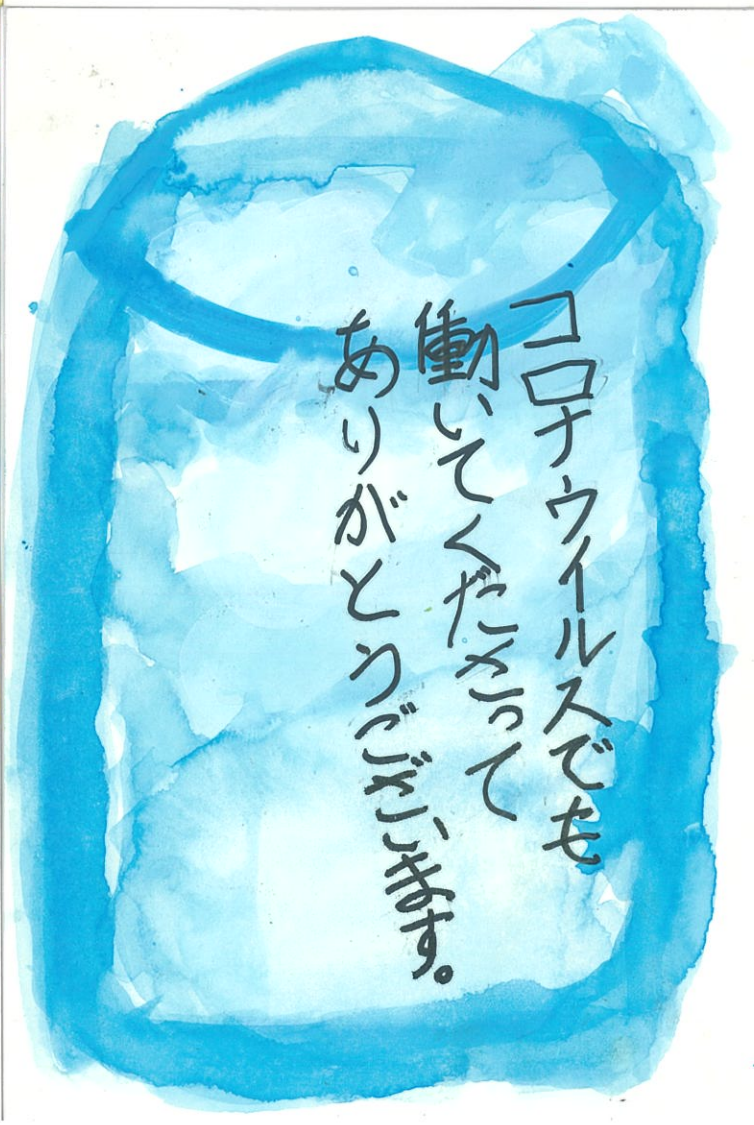 コロナウイルスでも
働いてくださって
ありがとうございます。